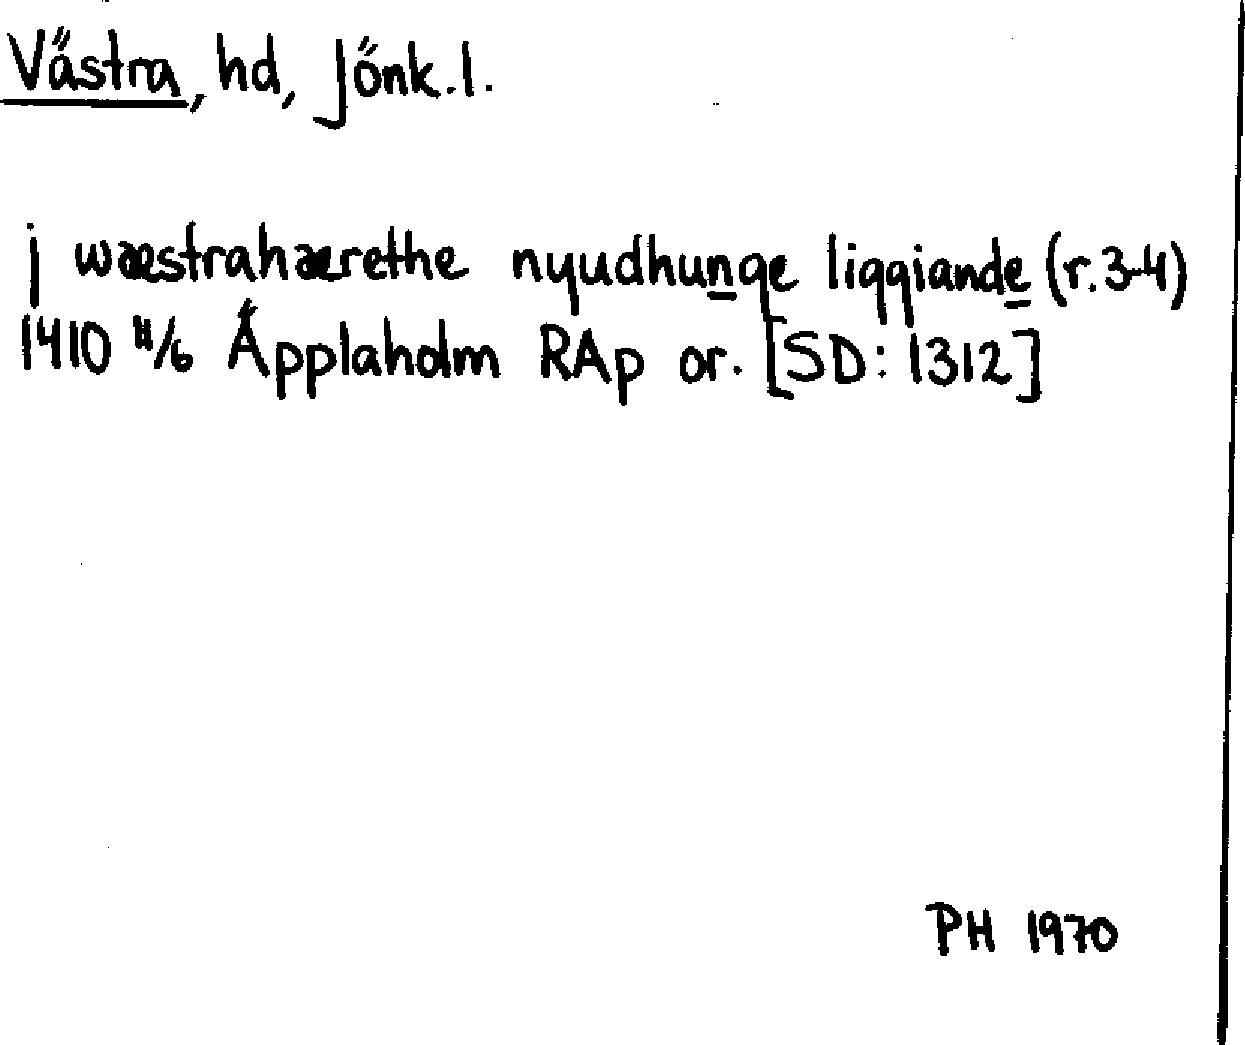 Västra, hd, Jönk.l.
j wæstrahærethe nyudhunge liggiande (r.3-4)
1410 11/6 Äpplaholm RAp or. [SD: 1312]
PH 1970